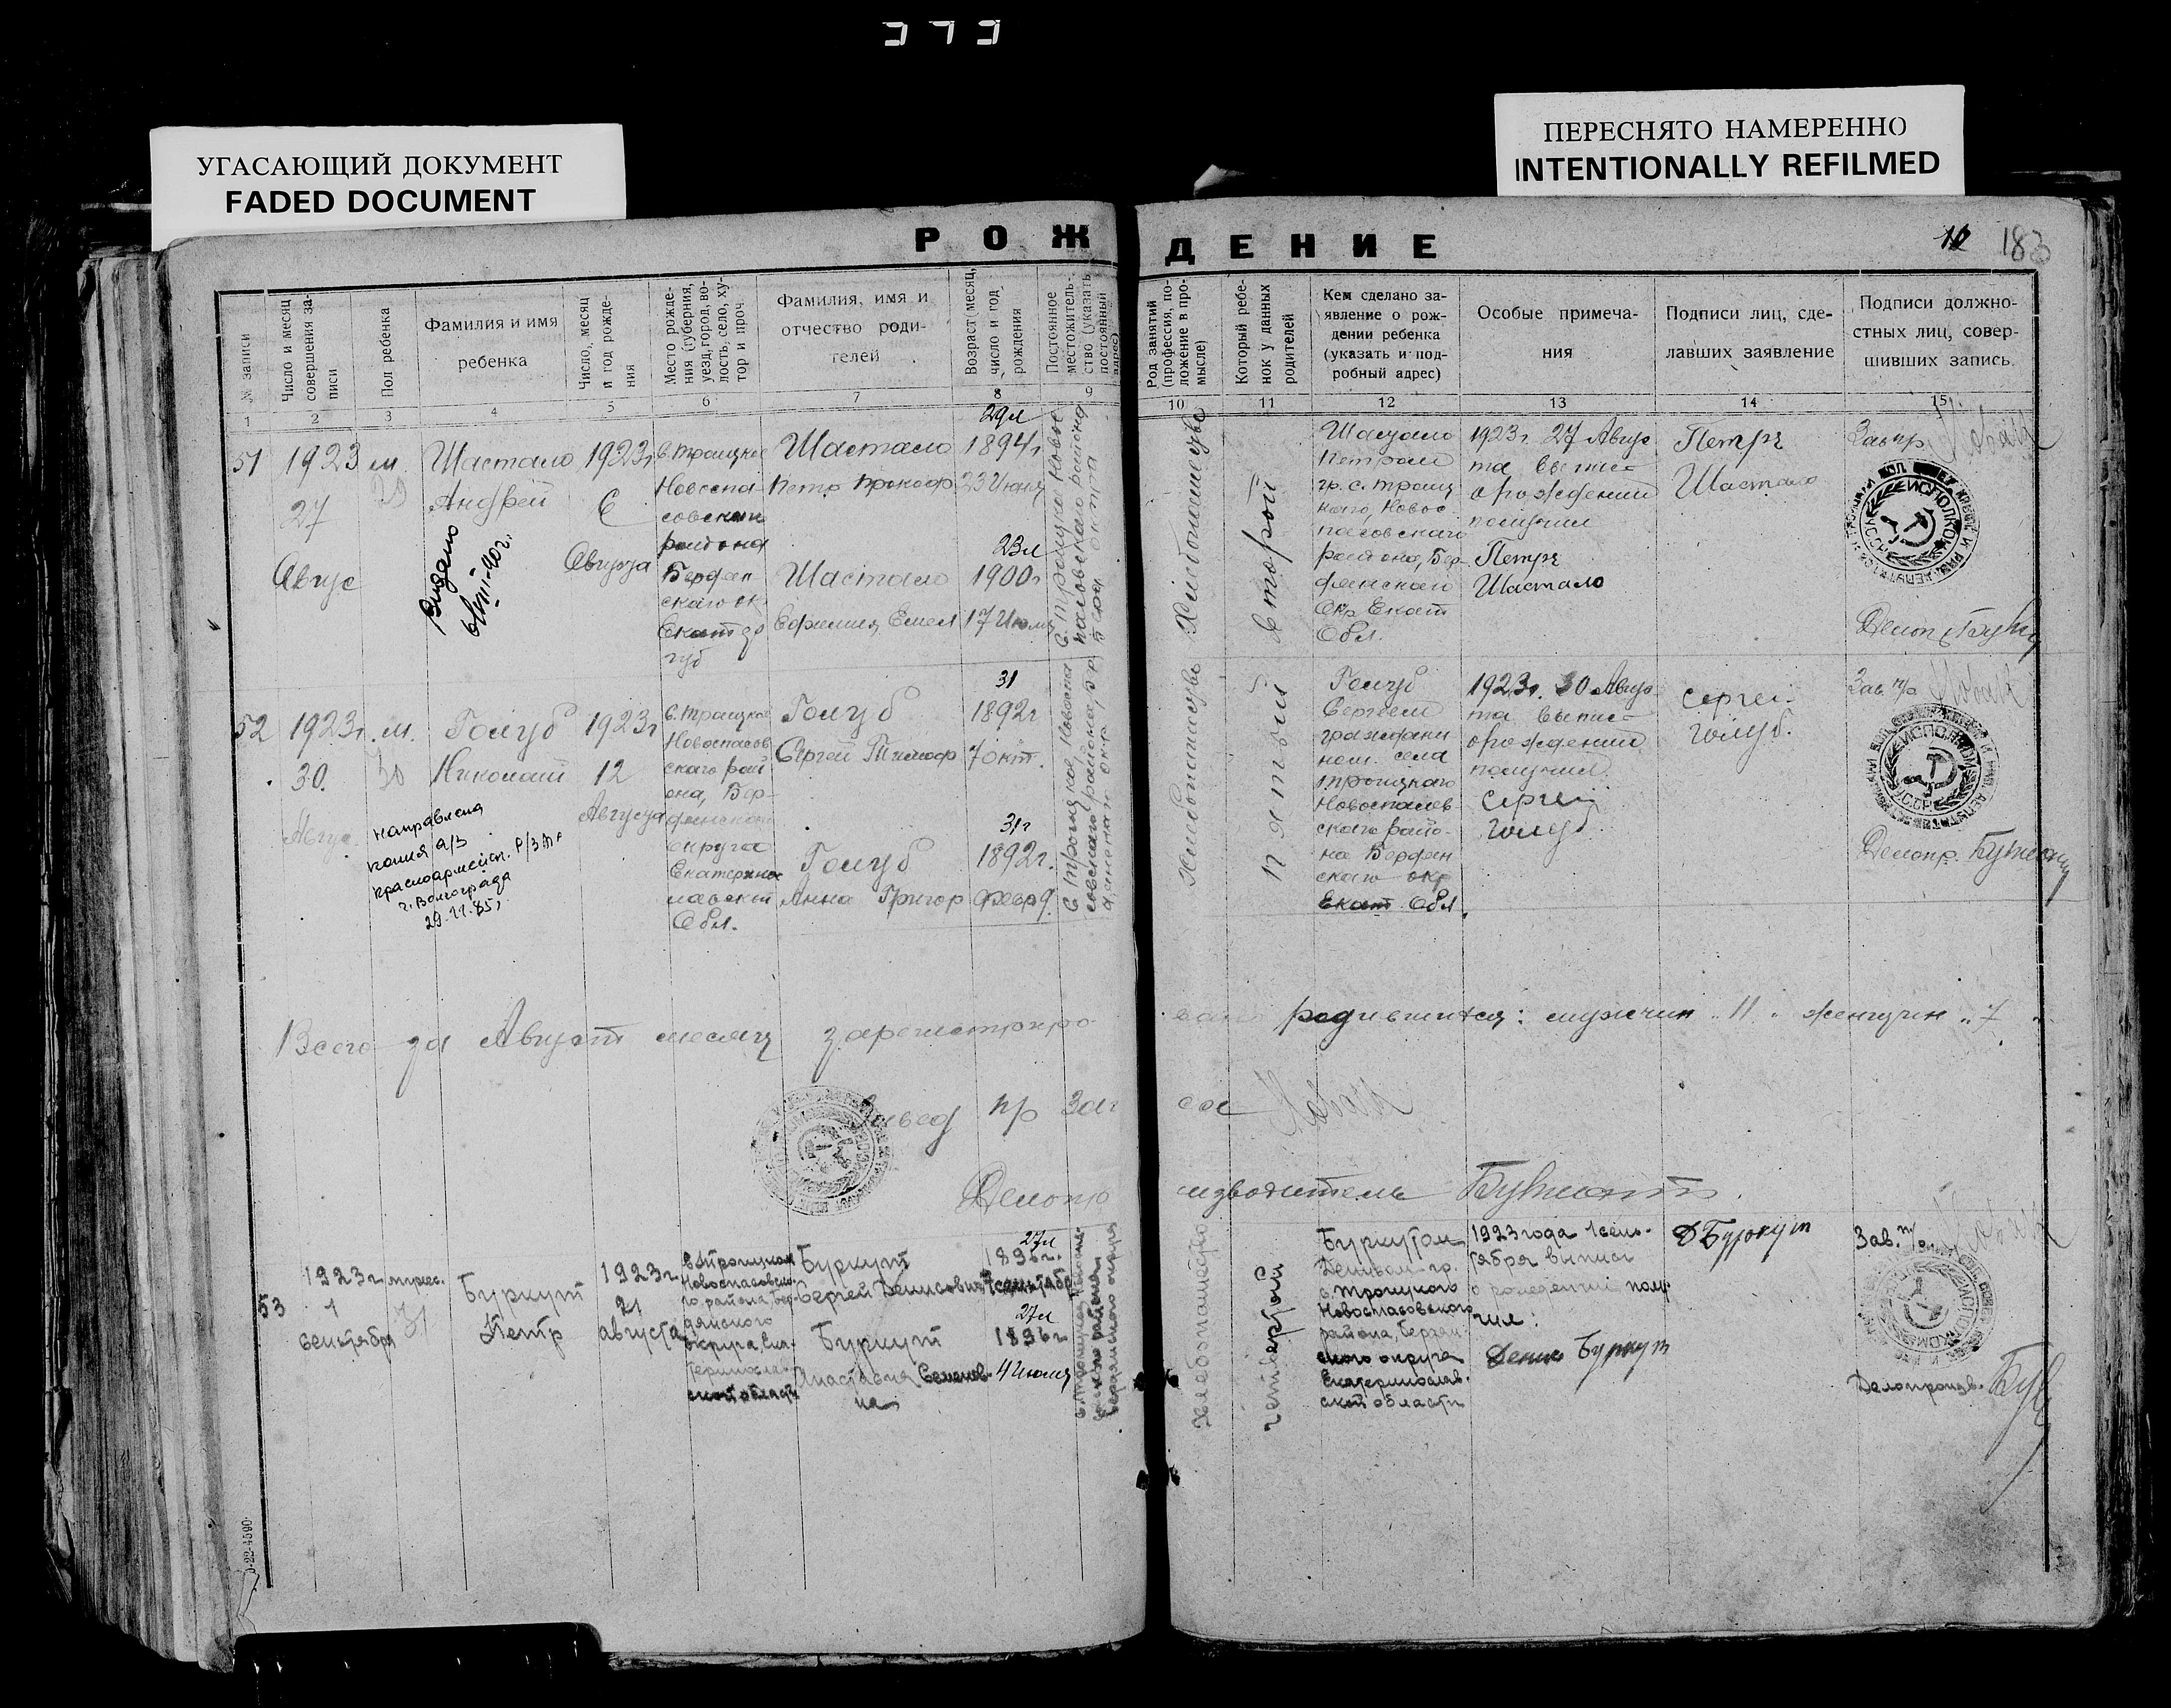 373
УГАСАЮЩИЙ ДОКУМЕНТ
FADED DOCUMENT
ПЕРЕСНЯТО НАМЕРЕННО
INTENTIONALLY REFILMED
РОЖДЕНИЕ
183
№ записи
Число и месяц совершения записи
Пол ребенка
Фамилия и имя
ребенка
Число, месяц и год рождения
Место рождения (губерния, уезд, город, волость, село, хутор и проч
Фамилия, имя и
отчество роди-
телей
Возраст (месяц, число и год рождения
Постоянное местожительство (указать постоянный адрес)
Род занятий (профессия, положение в промысле)
Который ребенок у данных родителей
Кем сделано за-
явление о рож-
дении ребенка
(указать и под-
робный адрес)
Особые примеча-
ния
Подписи лиц, сде-
лавших заявление
Подписи должно-
стных лиц, совер-
шивших запись
1 2 3 4 5 6 7 8 9 10 11 12 13 14 15
51
1923
27
Авгус
м.
Шастало
Андрей
Выдано
1923г
6
Августа
с. Троицкое
Новоспа-
совским
района
Бердян
ского ок
Екат
губ
Шастало
Петр Прокоф
Шастало
Ефимия Емел
29л
1894г
23 Июня
23л
1900г
17 Июля
Хлебопашество
Второй
Шастало
Петром
гр. с. Троиц
кого, Новос
пасовского
района, Бер-
дянского
Окр Екат
Обл.
1923г 27 Авгус
та выпись
о рождении
получил
Петр
Шастало
Петр
Шастало
Зав пр
Делопр
52
1923г.
30.
Авгус
м.
Голуб
Николай
Направлена
копия а/з
красноармейск. Р/ЗАГС
г. Волгограда
29.11.85г
1923г
12
Августа
с. Троицкое
Новоспасов
ского рай
она, Бер-
дянского
округа
Екатерино
славской
Обл.
Голуб
Сергей Тимоф
Голуб
Анна Григор
31
1892г
7 окт.
31г
1892г.
февр 9.
Хлебопашество
пятый
Голуб
Сергеем
граждани
ном села
Троицкого
Новоспасов-
ского райо-
на Бердян
ского окр
Екат Обл.
1923г. 30 Авгус
та выпис-
о рождении
получил.
Сергей
Голуб
Сергей
Голуб.
Зав. п/о
Делопр.
Всего за Август месяц зарегистриро-
вано родившихся: мужчин "11" женщин "7"
Завед п/о Загсос
Делопроизводитель
53
1923г
1
сентября
мужс.
Буркут
Петр
1923г.
21
августа
в с Троицком
Новоспасовско-
го района, Бер-
дянского
округа, Ека-
теринослав-
ской области
Буркут
Сергей Денисович
Буркут
Анастасия Семенов-
на
27л
1896г.
7 сентябр
27л
1896г
4 Июня
Хлебопашество
четвертый
Буркутом
Денисом гр.
с. Троицкого
Новоспасовского
района, Бердян-
ского округа
Екатеринослав-
ской области
1923 года 1 сен-
тября выпись
о рождении полу-
чил:
Денис Буркут
Д Буркут
Зав. п/о
Делопроизв.